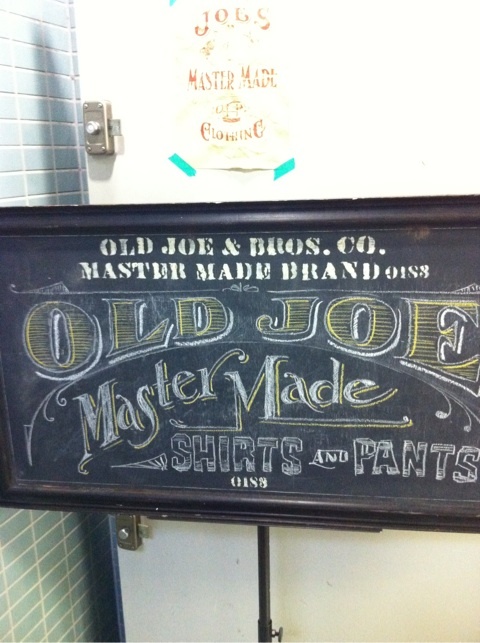 JOE'S
MASTER MADE
CLOTHING
OLD JOE & BROS. CO.
MASTER MADE BRAND 0188
OLD JOE
Master Made
SHIRTS AND PANTS
0188